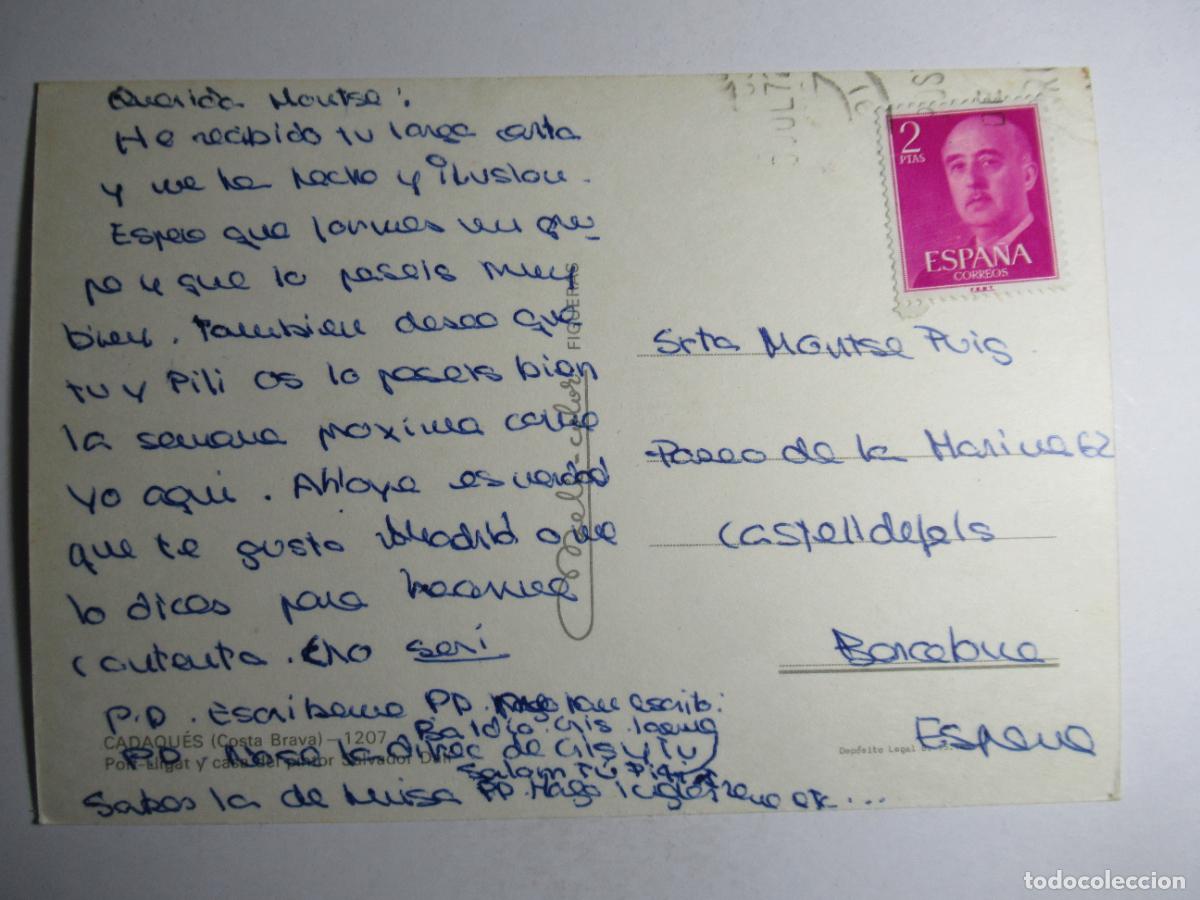 Querida Montse:
He recibido tu larga carta
y me ha hecho y ilusion.
Espero que formes un gru
po y que lo paseis muy
bien. Tambien deseo que
tu y Pili os lo paseis bien
la semana proxima como
yo aqui. Ah! oye es verdad
que te gusto Madrid o me
lo dices para hacerme
contenta. Eno seri
P.D. Escribeme PP.
PD. la direc de Cris y tu
Sabes la de Luisa PP. Hago
CADAQUÉS (Costa Brava) - 1207
Port-Lligat y casa del pintor Salvador Dalí
FIGUERAS
JUL 7
2
PTAS
ESPAÑA
CORREOS
F.N.M.T.
Srta Montse Puig
Paseo de la Marina 62
Castelldefels
Barcelona
España
Depósito Legal
todocoleccion